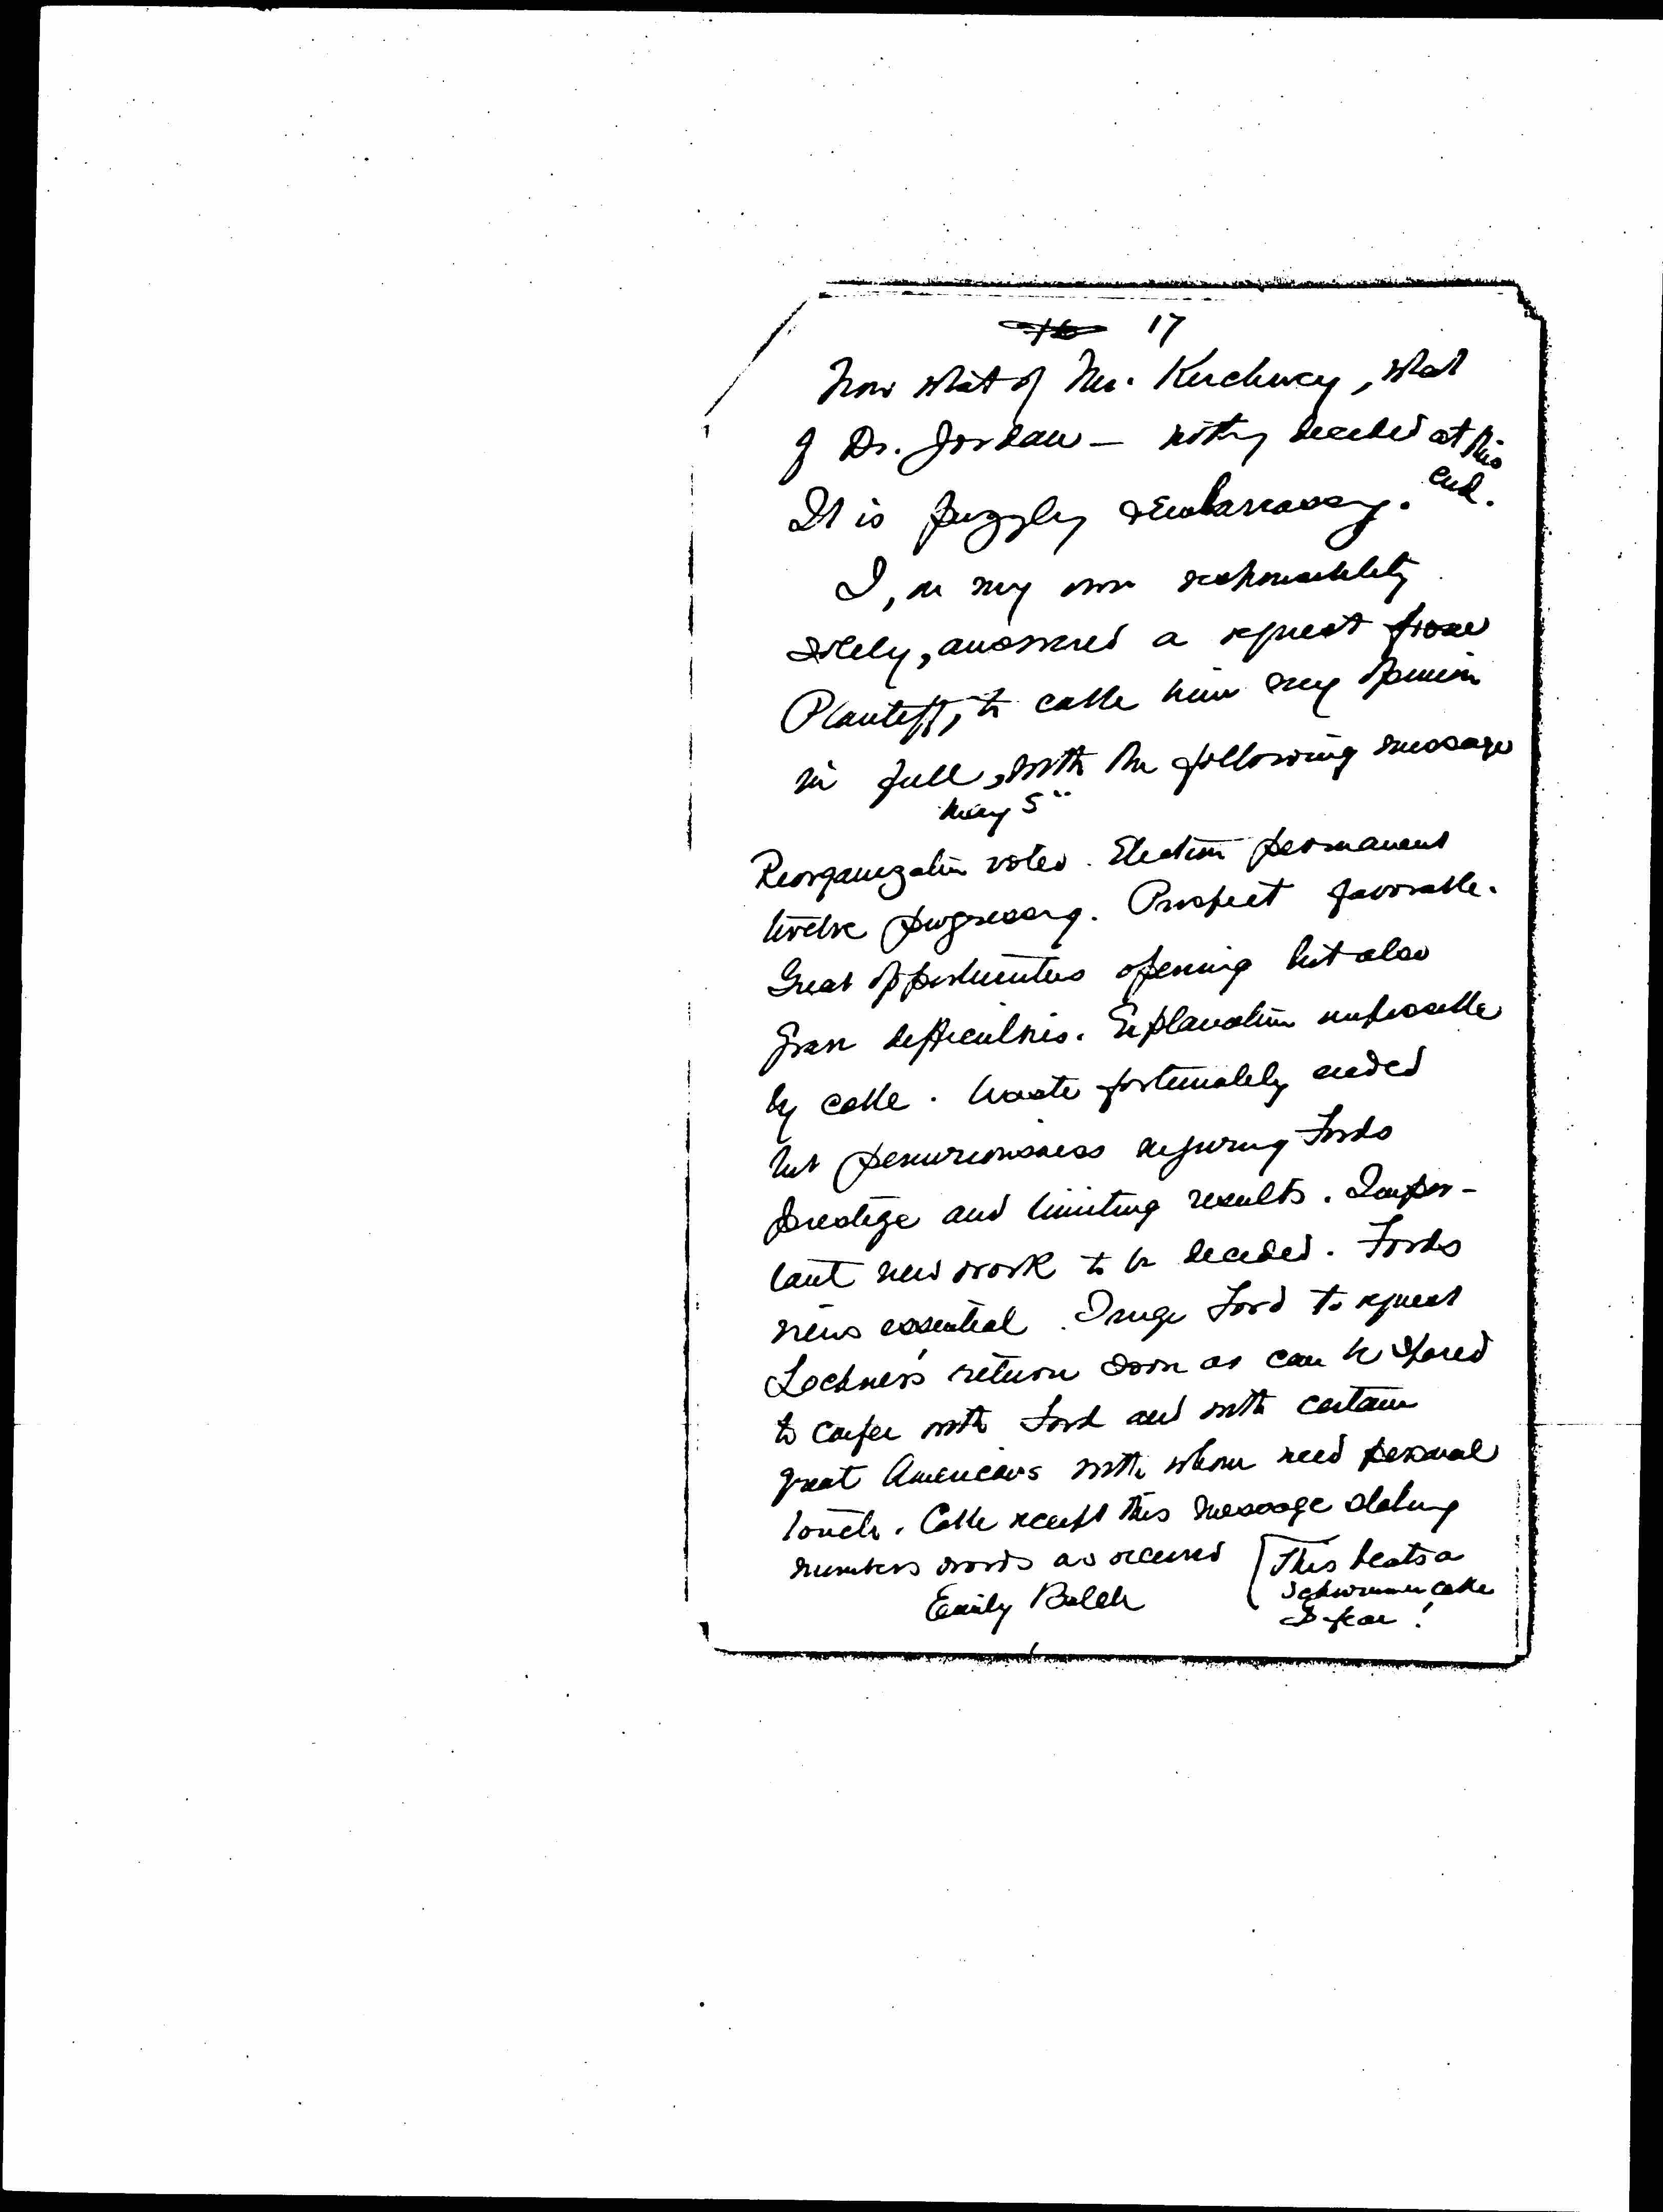 17
Now what of Mr. Kirchwey, what
of Dr. Jordan — nothing decided at this
end.
It is puzzling & embarrassing.
I, on my own responsibility
solely, answered a request from
Plantiff, to cable him my opinion
in full, with the following message
May 5"
Reorganization voted. Election permanent
twelve progressing. Prospect favorable.
Great opportunities opening but also
grave difficulties. Explanation impossible
by cable. Waste fortunately ended
but penuriousness injuring Fords
prestige and limiting results. Impor-
tant new work to be decided. Fords
views essential. I urge Ford to request
Lochner's return soon as can be spared
to confer with Ford and with certain
great Americans with whom need personal
touch. Cable receipt this message stating
numbers words as received
Emily Balch
[This beats a
Schwimmer cable
I fear!